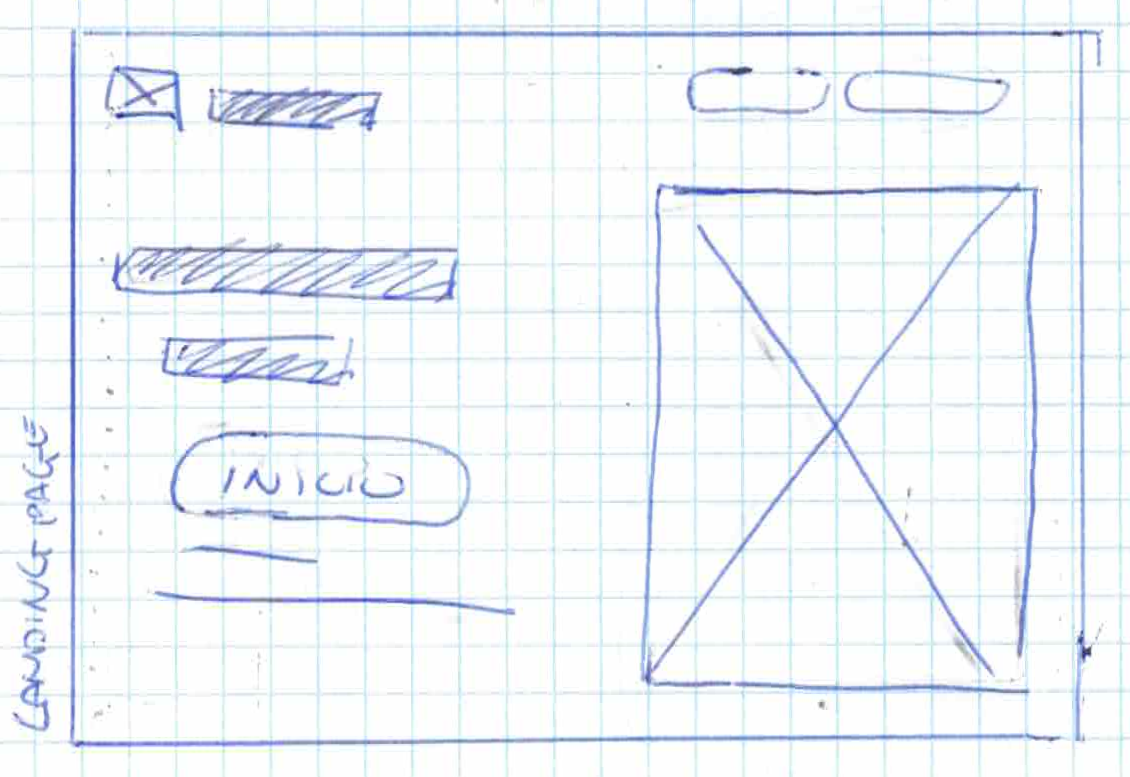 LANDING PAGE
INICIO